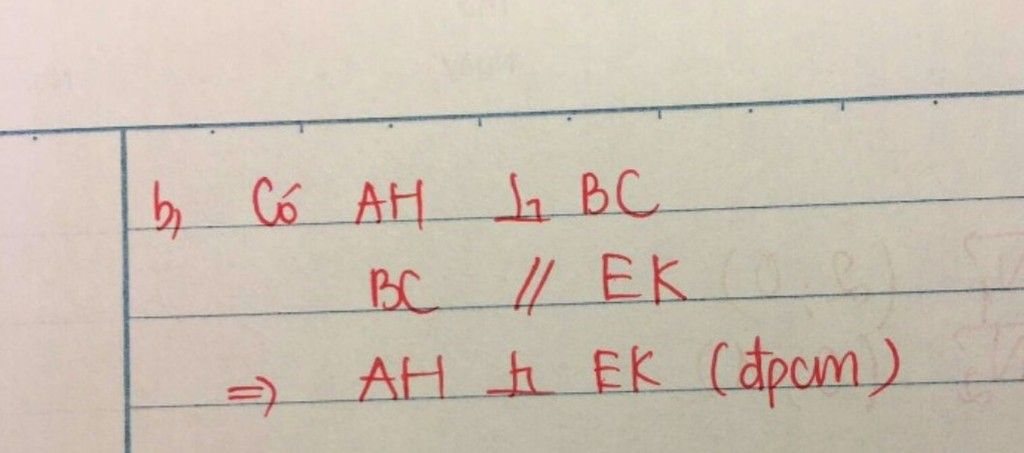 b, Có AH ⊥ BC
BC // EK
⇒ AH ⊥ EK (đpcm)